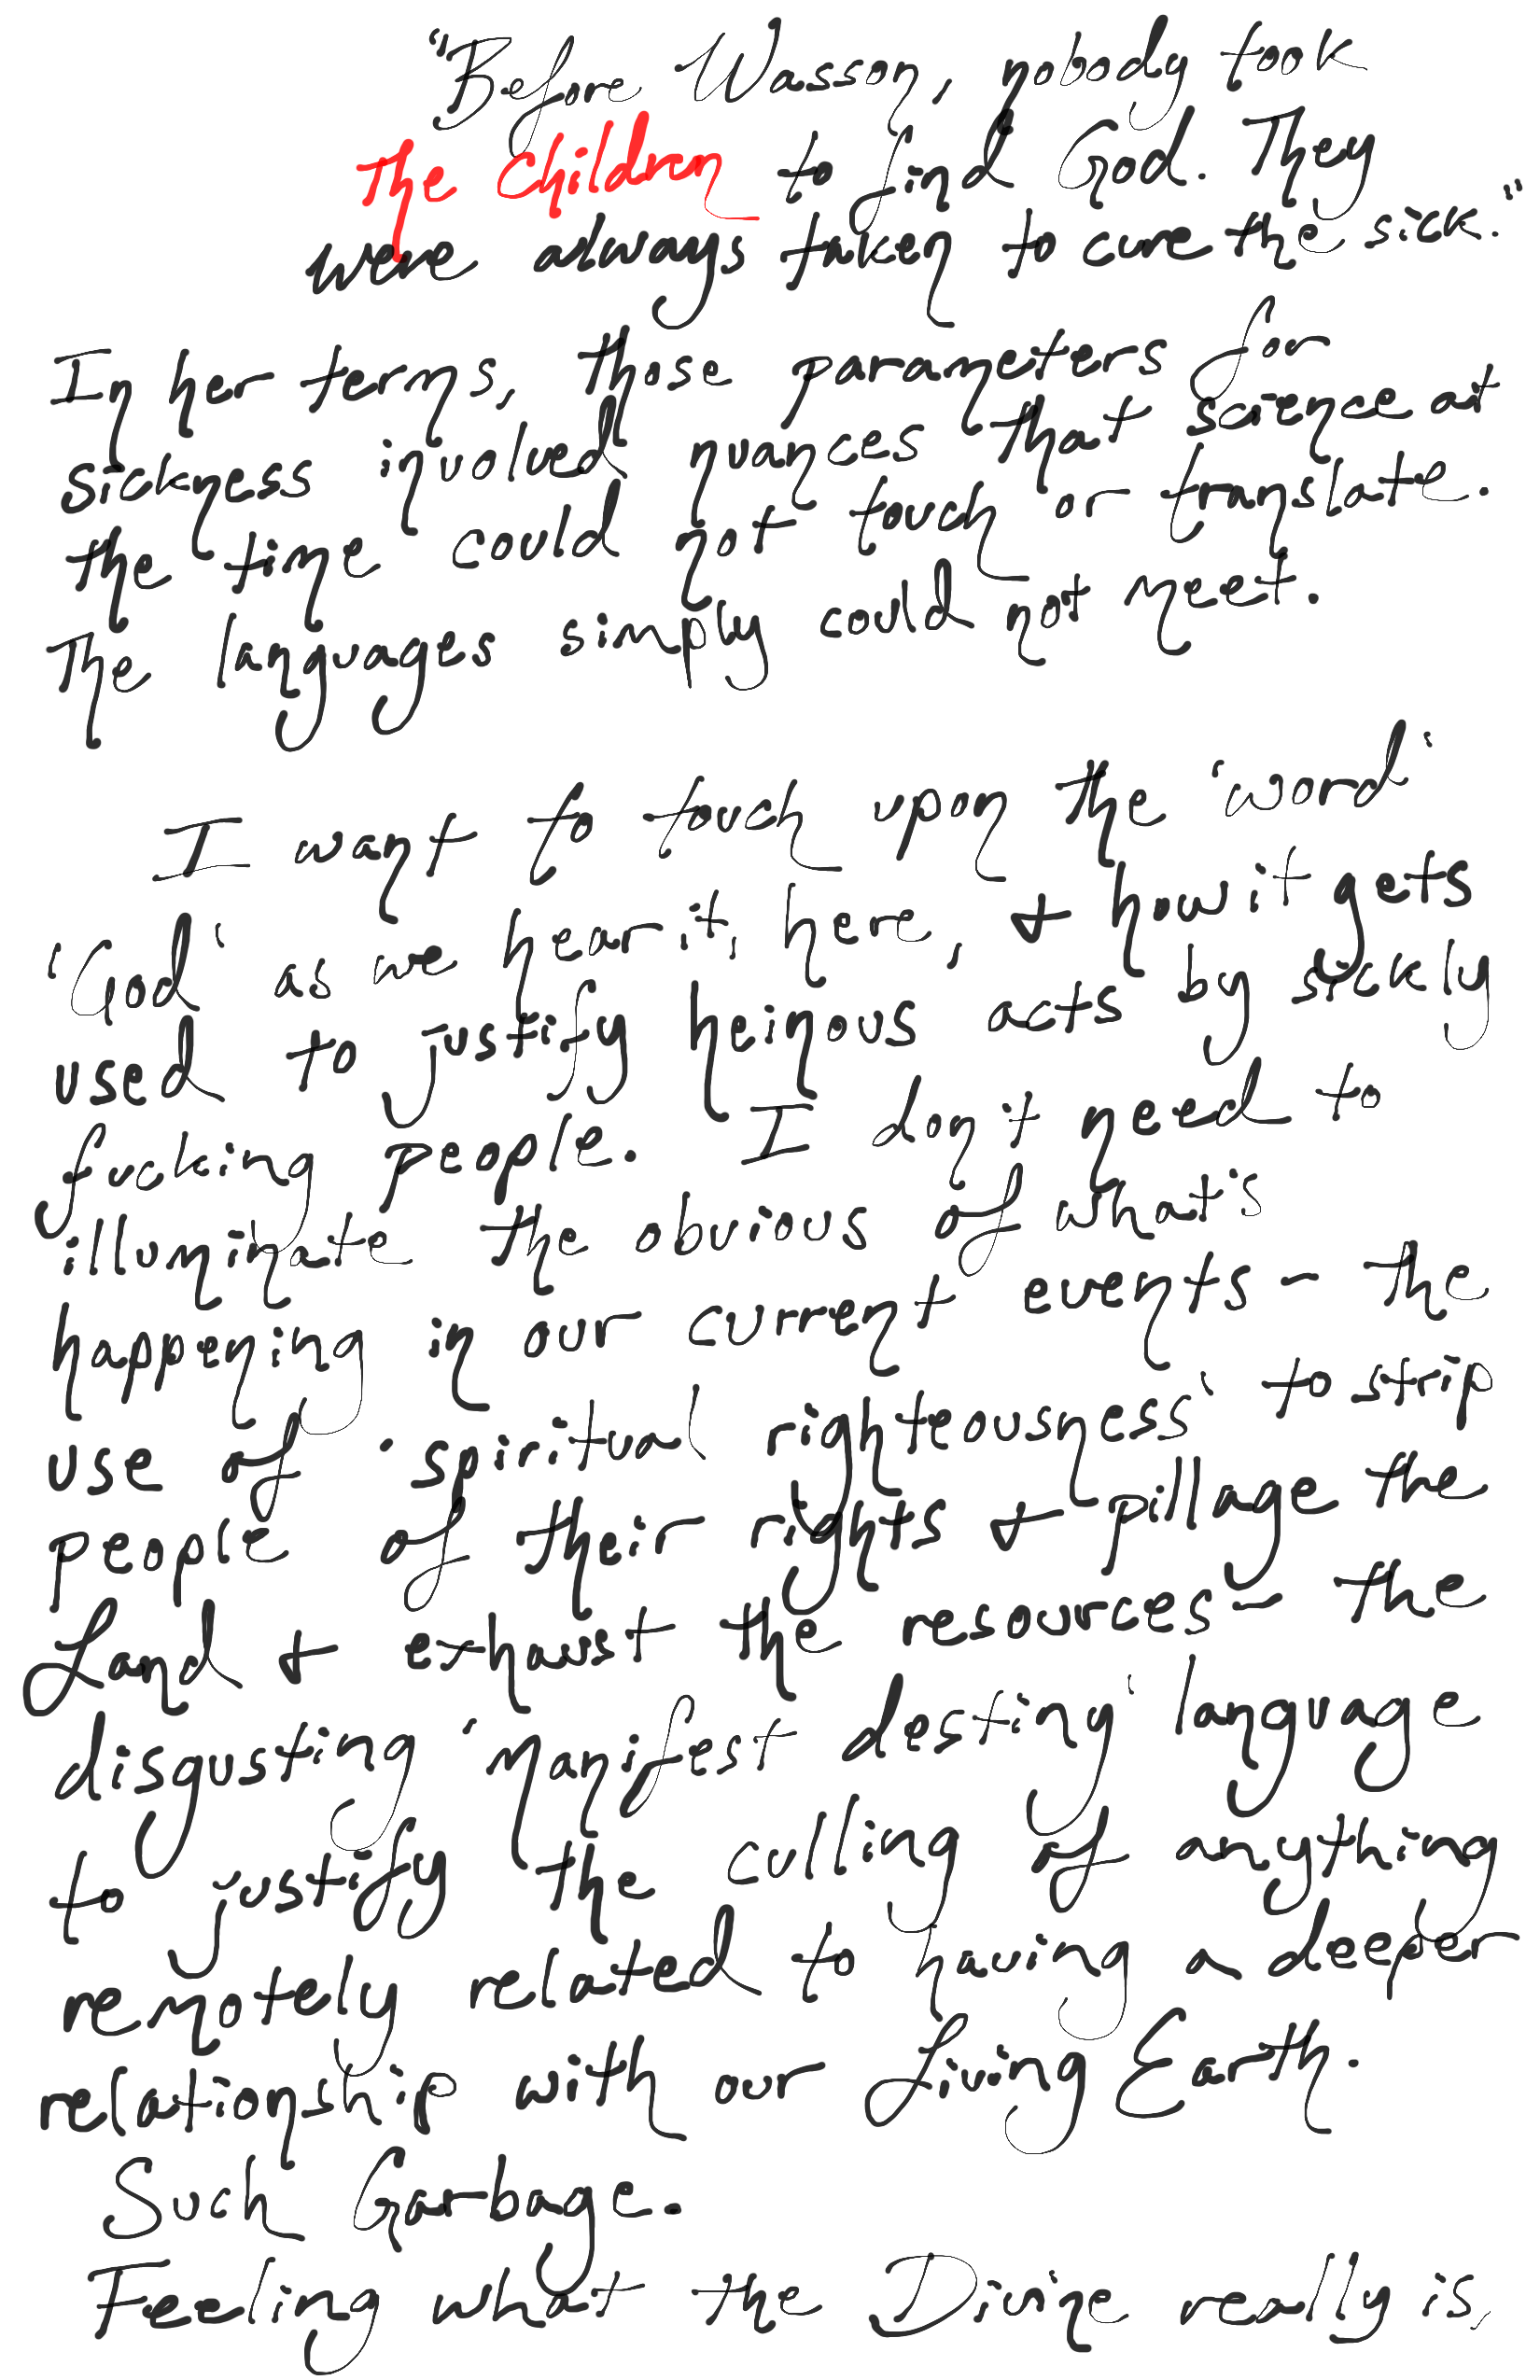 "Before Wasson, nobody took
The Children to find God. They
were always taken to cure the sick."
In her terms, those parameters for
sickness involved nuances that science at
the time could not touch or translate.
The languages simply could not meet.
I want to touch upon the 'word'
'God' as we hear it, here, + how it gets
used to justify heinous acts by sickly
fucking people. I don't need to
illuminate the obvious of what's
happening in our current events - the
use of 'spiritual righteousness' to strip
people of their rights + pillage the
Land + exhaust the resources - the
disgusting 'Manifest destiny' language
to justify the culling of anything
remotely related to having a deeper
relationship with our Living Earth.
Such Garbage.
Feeling what the Divine really is,